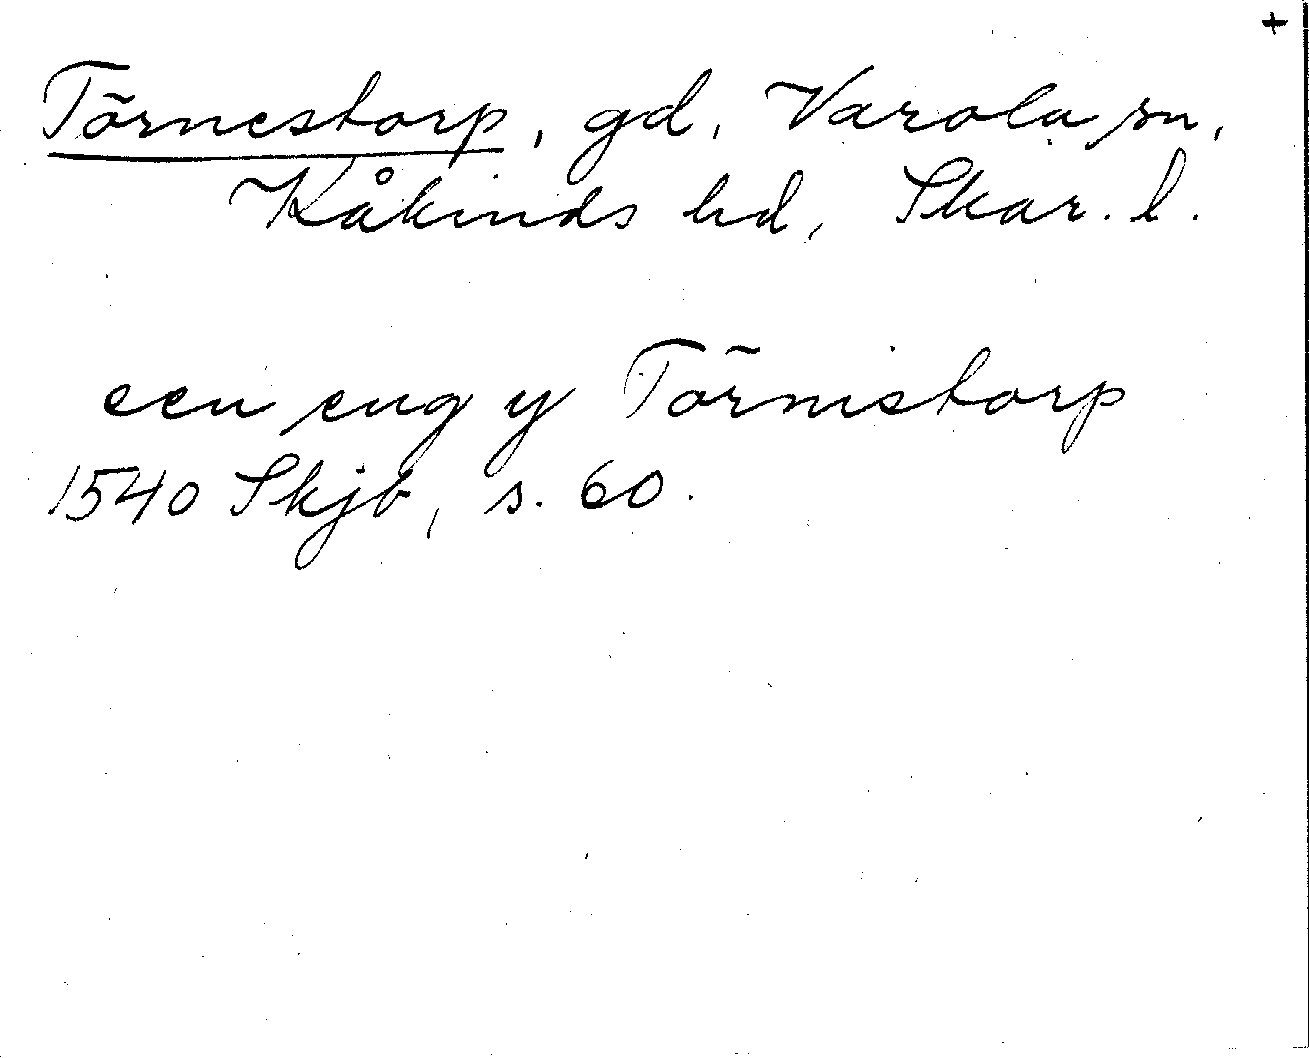 +
Törnestorp, gd, Varola sn,
Kåkinds hd, Skar. l.
een eng y Törnistorp
1540 Skjb, s. 60.